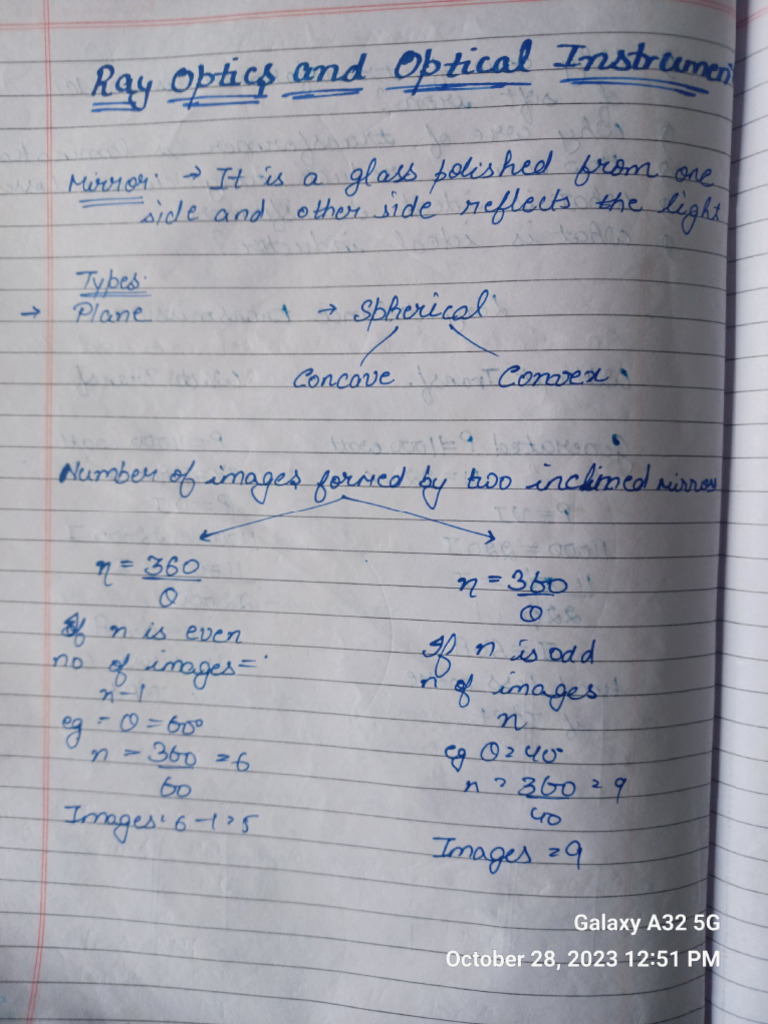 Ray Optics and Optical Instrumen
Mirror: → It is a glass polished from one
side and other side reflects the light
Types:
→ Plane → Spherical
Concave Convex
Number of images formed by two inclined mirror
n = 360/θ
If n is even
no of images =
n-1
eg - θ = 60°
n = 360/60 = 6
Images = 6-1=5
n = 360/θ
If n is odd
n of images
n
eg θ = 40°
n = 360/40 = 9
Images = 9
Galaxy A32 5G
October 28, 2023 12:51 PM